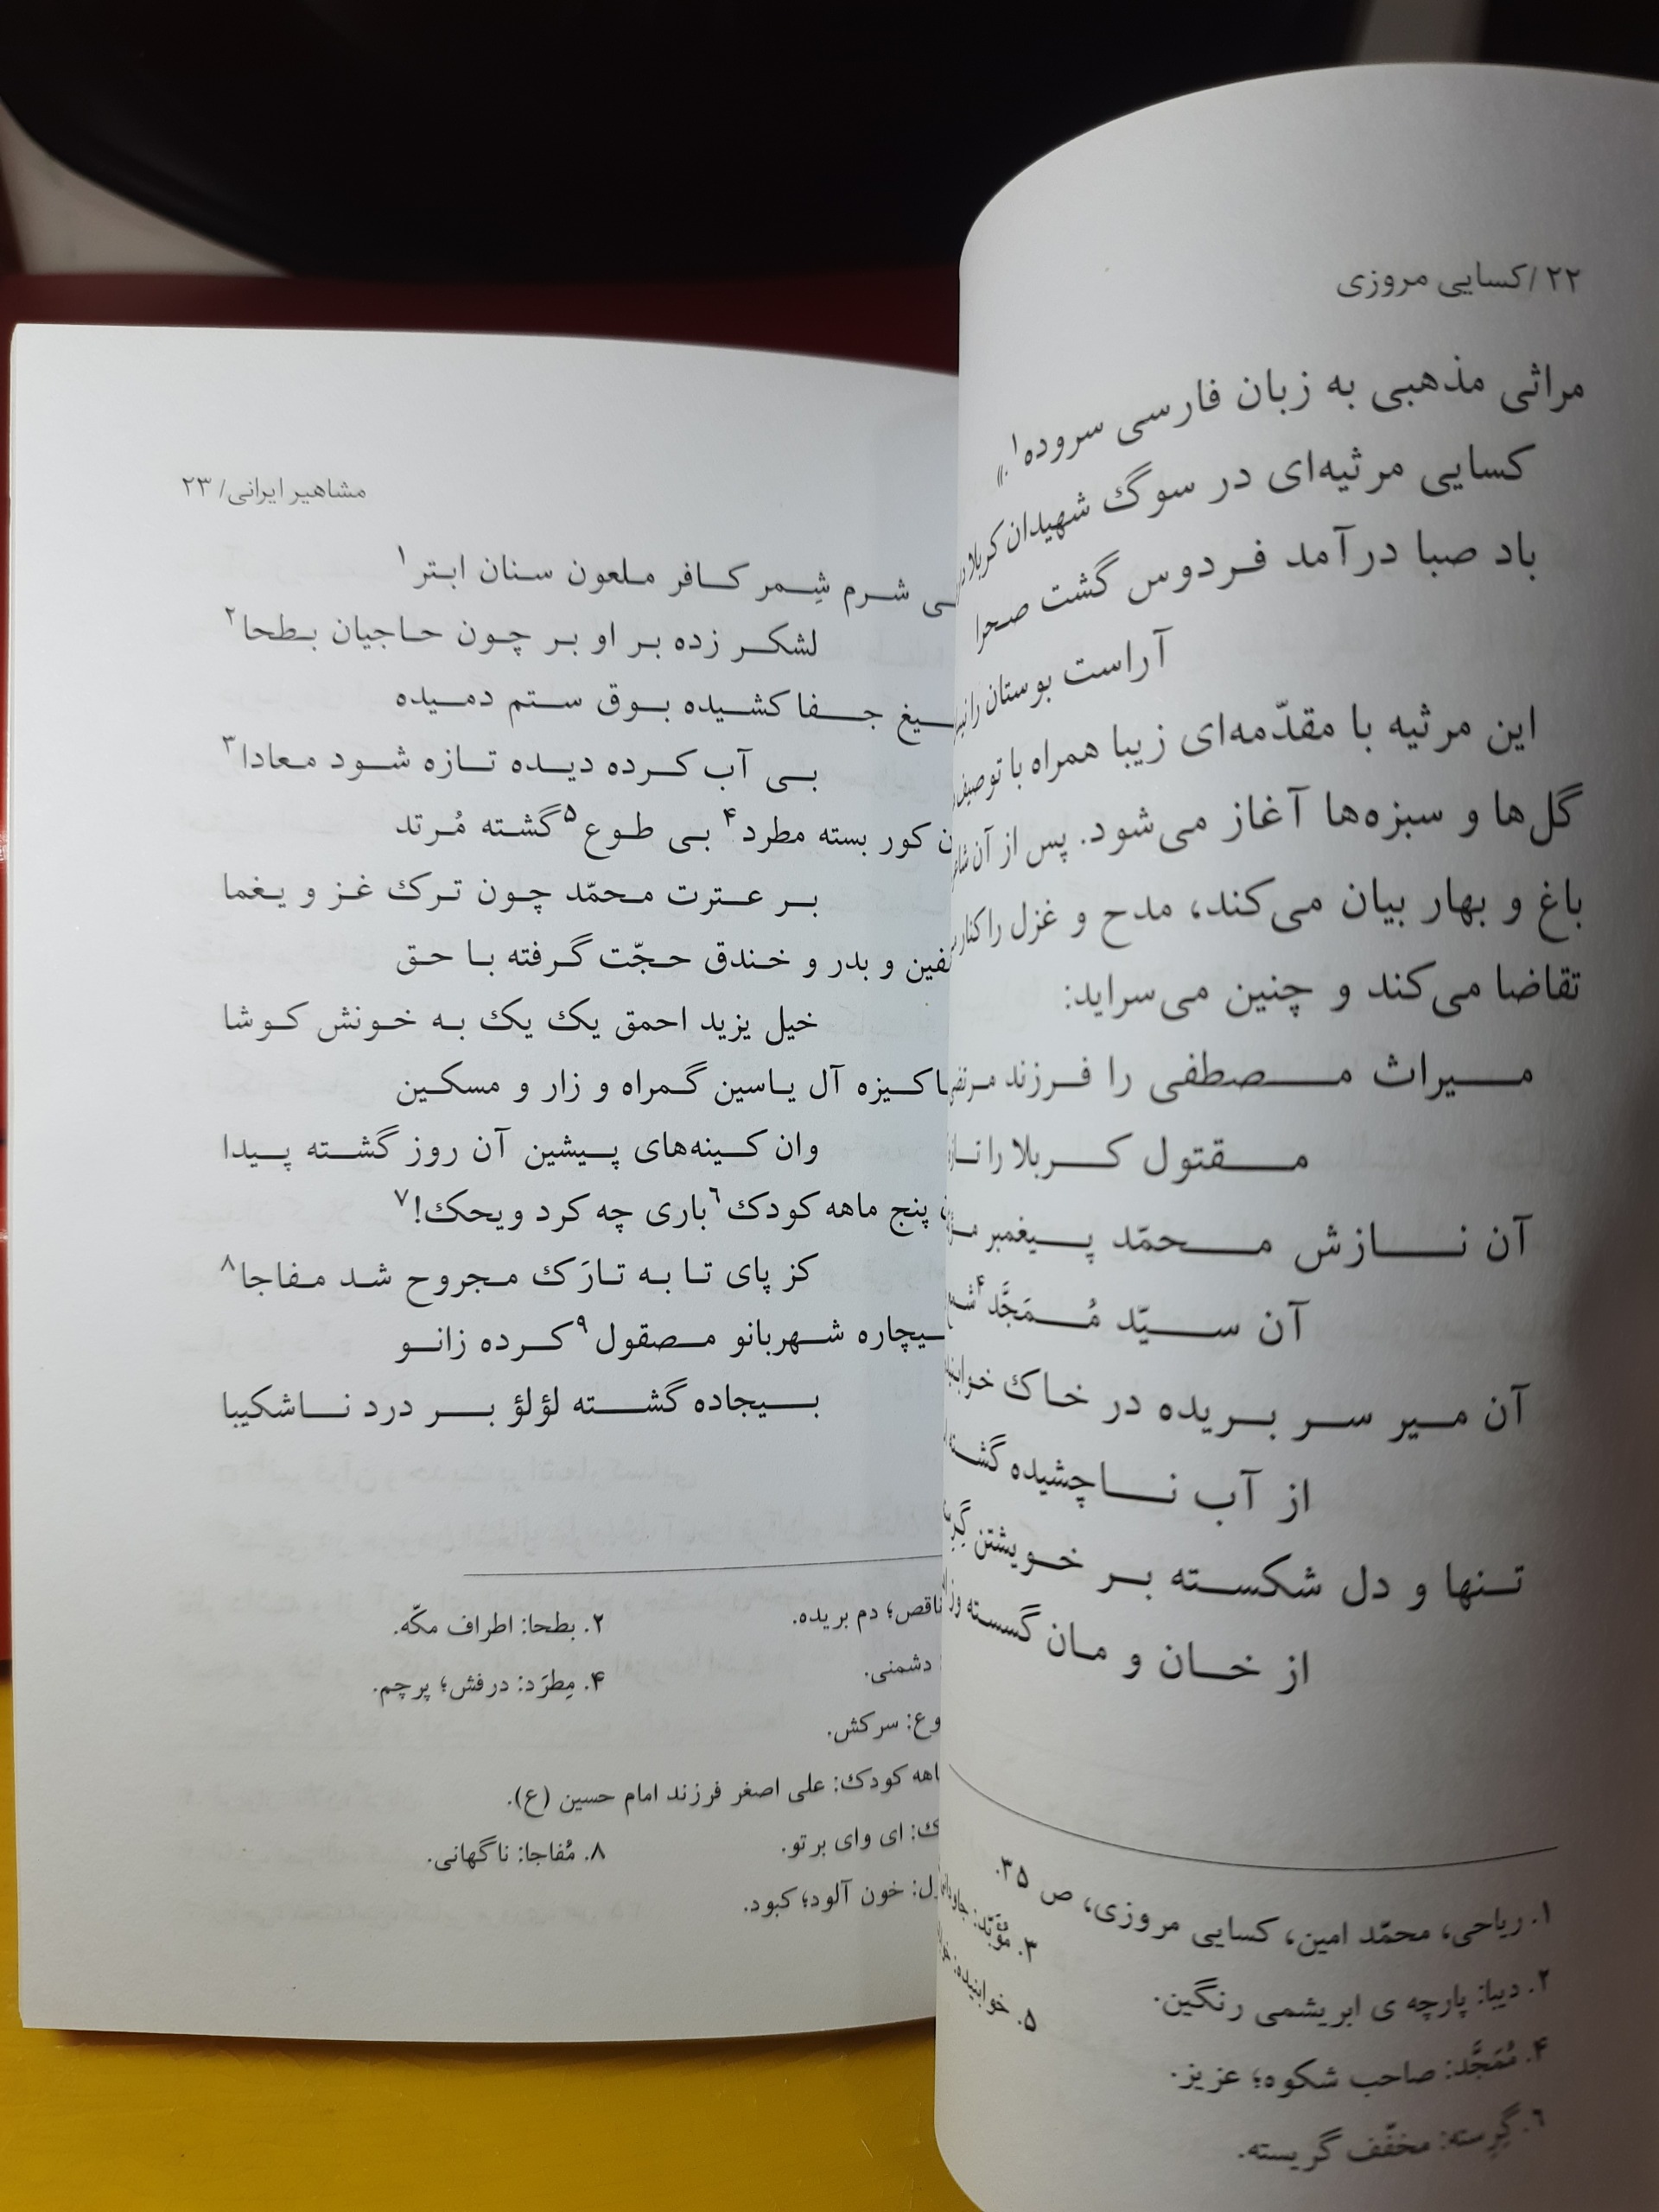 ۲۲ /کسایی مروزی
مراثی مذهبی به زبان فارسی سروده۱.»
کسایی مرثیه‌ای در سوگ شهیدان کربلا
باد صبا درآمد فردوس گشت صحرا
آراست بوستان را
این مرثیه با مقدّمه‌ای زیبا همراه با توصیف
گل‌ها و سبزه‌ها آغاز می‌شود. پس از آن
باغ و بهار بیان می‌کند، مدح و غزل را کنار
تقاضا می‌کند و چنین می‌سراید:
میراث مصطفی را فرزند
مقتول کربلا را
آن نازش محمّد پیغمبر
آن سیّد مُمَجَّد۴
آن میر سر بریده در خاک
از آب ناچشیده
تنها و دل شکسته بر خویشتن
از خان و مان گسسته
۱. ریاحی، محمّد امین، کسایی مروزی، ص ۳۵.
۲. دیبا: پارچه ی ابریشمی رنگین.
۳. مُؤَبّد:
۴. مُمَجَّد: صاحب شکوه؛ عزیز.
۵. خوابنیده:
۶. گِرِسته: مخفّف گریسته.
مشاهیر ایرانی/ ۲۳
شرم شِمر کافر ملعون سنان ابتر۱
لشکر زده بر او بر چون حاجیان بطحا۲
جفا کشیده بوق ستم دمیده
بی آب کرده دیده تازه شود معادا۳
کور بسته مطرد۴ بی طوع۵ گشته مُرتد
بر عترت محمّد چون ترک غز و یغما
و بدر و خندق حجّت گرفته با حق
خیل یزید احمق یک یک به خونش کوشا
آل یاسین گمراه و زار و مسکین
وان کینه‌های پیشین آن روز گشته پیدا
پنج ماهه کودک۶ باری چه کرد ویحک!۷
کز پای تا به تارَک مجروح شد مفاجا۸
شهربانو مصقول۹ کرده زانو
بیجاده گشته لؤلؤ بر درد ناشکیبا
ناقص؛ دم بریده.
۲. بطحا: اطراف مکّه.
دشمنی.
۴. مِطرَد: درفش؛ پرچم.
سرکش.
کودک: علی اصغر فرزند امام حسین (ع).
ای وای بر تو.
۸. مُفاجا: ناگهانی.
خون آلود؛ کبود.